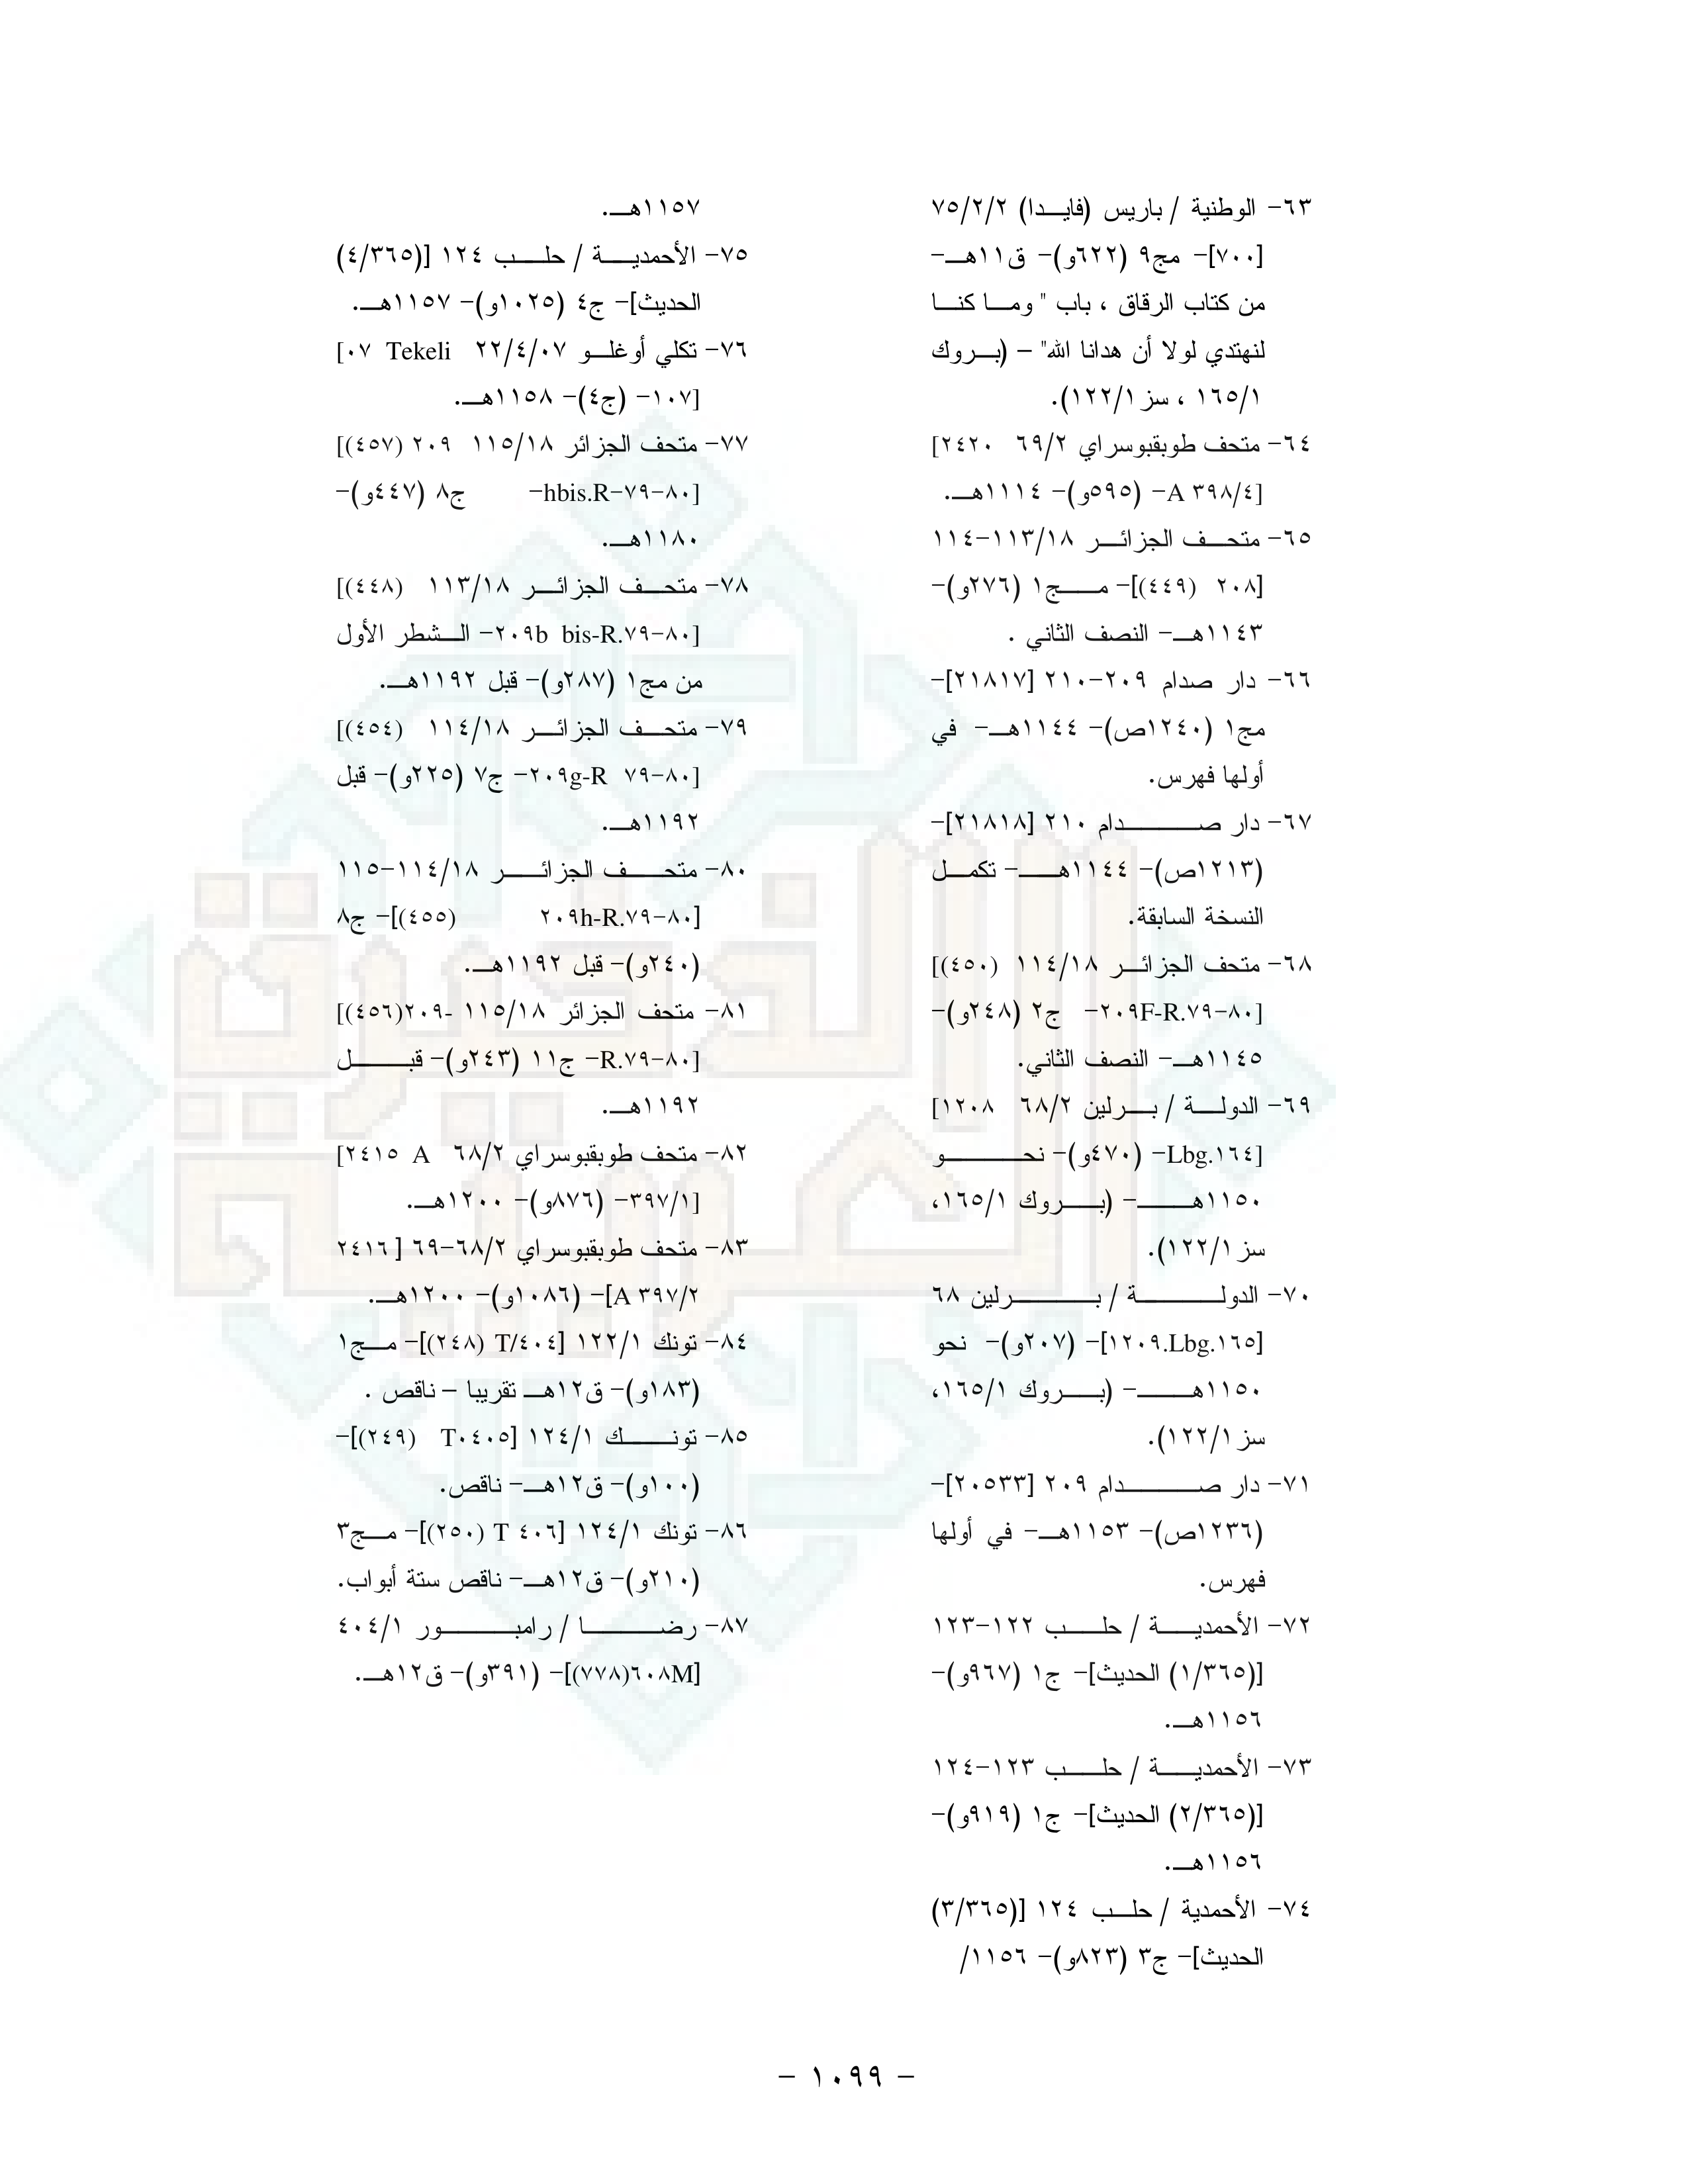 ٦٣- الوطنية / باريس (فايدا) ٧٥/٢/٢
[٧٠٠]- مج٩ (٦٢٢و)- ق١١هـ-
من كتاب الرقاق ، باب " وما كنا
لنهتدي لولا أن هدانا الله" – (بروك
١٦٥/١ ، سز١٢٢/١).
٦٤- متحف طوبقبوسراي ٦٩/٢ [٢٤٢٠
A ٣٩٨/٤]- (٥٩٥و)- ١١١٤هـ.
٦٥- متحف الجزائر ١١٣/١٨-١١٤
[٢٠٨ (٤٤٩)]- مج١ (٢٧٦و)-
١١٤٣هـ- النصف الثاني .
٦٦- دار صدام ٢٠٩-٢١٠ [٢١٨١٧]-
مج١ (١٢٤٠ص)- ١١٤٤هـ- في
أولها فهرس.
٦٧- دار صدام ٢١٠ [٢١٨١٨]-
(١٢١٣ص)- ١١٤٤هـ- تكمل
النسخة السابقة.
٦٨- متحف الجزائر ١١٤/١٨ [(٤٥٠)
٢٠٩F-R.٧٩-٨٠]- ج٢ (٢٤٨و)-
١١٤٥هـ- النصف الثاني.
٦٩- الدولة / برلين ٦٨/٢ [١٢٠٨
Lbg.١٦٤]- (٤٧٠و)- نحو
١١٥٠هـ- (بروك ١٦٥/١،
سز١٢٢/١).
٧٠- الدولة / برلين ٦٨
[١٢٠٩.Lbg.١٦٥]- (٢٠٧و)- نحو
١١٥٠هـ- (بروك ١٦٥/١،
سز١٢٢/١).
٧١- دار صدام ٢٠٩ [٢٠٥٣٣]-
(١٢٣٦ص)- ١١٥٣هـ- في أولها
فهرس.
٧٢- الأحمدية / حلب ١٢٢-١٢٣
[(١/٣٦٥) الحديث]- ج١ (٩٦٧و)-
١١٥٦هـ.
٧٣- الأحمدية / حلب ١٢٣-١٢٤
[(٢/٣٦٥) الحديث]- ج١ (٩١٩و)-
١١٥٦هـ.
٧٤- الأحمدية / حلب ١٢٤ [(٣/٣٦٥)
الحديث]- ج٣ (٨٢٣و)- ١١٥٦/
١١٥٧هـ.
٧٥- الأحمدية / حلب ١٢٤ [(٤/٣٦٥)
الحديث]- ج٤ (١٠٢٥و)- ١١٥٧هـ.
٧٦- تكلي أوغلو ٢٢/٤/٠٧ [٠٧ Tekeli
١٠٧]- (ج٤)- ١١٥٨هـ.
٧٧- متحف الجزائر ١١٥/١٨ [(٤٥٧) ٢٠٩
hbis.R-٧٩-٨٠]- ج٨ (٤٤٧و)-
١١٨٠هـ.
٧٨- متحف الجزائر ١١٣/١٨ [(٤٤٨)
٢٠٩b bis-R.٧٩-٨٠]- الشطر الأول
من مج١ (٢٨٧و)- قبل ١١٩٢هـ.
٧٩- متحف الجزائر ١١٤/١٨ [(٤٥٤)
٢٠٩g-R ٧٩-٨٠]- ج٧ (٢٢٥و)- قبل
١١٩٢هـ.
٨٠- متحف الجزائر ١١٤/١٨-١١٥
[٢٠٩h-R.٧٩-٨٠ (٤٥٥)]- ج٨
(٢٤٠و)- قبل ١١٩٢هـ.
٨١- متحف الجزائر ١١٥/١٨ [(٤٥٦)٢٠٩-
R.٧٩-٨٠]- ج١١ (٢٤٣و)- قبل
١١٩٢هـ.
٨٢- متحف طوبقبوسراي ٦٨/٢ [٢٤١٥ A
٣٩٧/١]- (٨٧٦و)- ١٢٠٠هـ.
٨٣- متحف طوبقبوسراي ٦٨/٢-٦٩ [٢٤١٦
A ٣٩٧/٢]- (١٠٨٦و)- ١٢٠٠هـ.
٨٤- تونك ١٢٢/١ [T/٤٠٤ (٢٤٨)]- مج١
(١٨٣و)- ق١٢هـ تقريبا – ناقص .
٨٥- تونك ١٢٤/١ [T٠٤٠٥ (٢٤٩)]-
(١٠٠و)- ق١٢هـ- ناقص.
٨٦- تونك ١٢٤/١ [T ٤٠٦ (٢٥٠)]- مج٣
(٢١٠و)- ق١٢هـ- ناقص ستة أبواب.
٨٧- رضا / رامبور ٤٠٤/١
[٦٠٨M(٧٧٨)]- (٣٩١و)- ق١٢هـ.
- ١٠٩٩ -